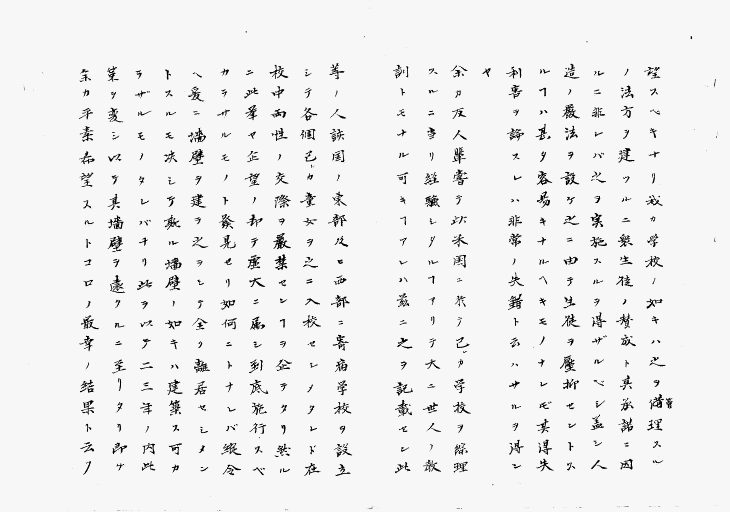 望スベキナリ我カ学校ノ如キハ之ヲ備理スル
ノ法方ヲ建ツルニ衆生徒ノ賛成ト其承諾ニ因
ルニ非レバ之ヲ実施スルヲ得ザルベシ蓋シ人
造ノ厳法ヲ設ケ之ニ由テ生徒ヲ壓抑セントス
ルヿハ甚タ容易キナルヘキモノナレ𪜈其得失
利害ヲ論スレハ非常ノ失錯ト云ハサルヲ得ン
ヤ
余カ友人輩嘗テ北米国ニ於テ己カ学校ヲ綜理
スルニ当リ経験シタルヿアリテ大ニ世人ノ教
訓トモナル可キヿアレハ茲ニ之ヲ記載セン此
等ノ人該国ノ東部及ヒ西部ニ寄宿学校ヲ設立
シテ各個己カ童女ヲ之ニ入校セシメタレド在
校中両性ノ交際ヲ厳禁センヿヲ企テタリ然ル
ニ此輩ヤ企望ノ却テ壓大ニ属シ到底施行スベ
カラサルモノト発見セリ如何ニトナレバ縦令
ヘ爰ニ墻壁ヲ建テ之ヲシテ全ク離居セシメン
トスルモ决シテ斯ル墻壁ノ如キハ建築ス可カ
ラザルモノタレバナリ此ヲ以テ二三年ノ内此
策ヲ変シ以テ其墻壁ヲ遠クルニ至リタリ即ナ
余カ平素希望スルトコロノ最幸ノ結果ト云フ